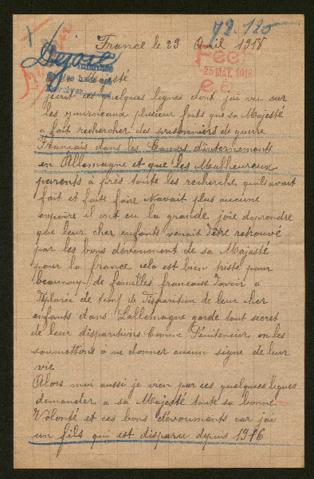 92.120
France le 29 Avril 1918
25 MAI 1918
ces quelques lignes dont jai vu sur
les journeaux plusieur faits que sa Majesté
a fait rechercher des prisonniers de guerre
Français dans les Camps d'internements
en Allemagne et que les Malheureux
parents a près toute les recherche quils avait
fait et faite faire Navait plus aucune
il ont eu la grande joie daprendre
que leur cher enfants venait d'être retrouvé
par les bons dévouement de sa Majesté
pour la france cela est bien triste pour
beaucoup de familles francaise davoir a
déplorée de de disparution de leur cher
enfants dans Lallemagne garde tout secret
de leur disparutions Comme Pénitencier on les
a ne donner aucun signe de leur
vie
Alors moi aussi je vien par ces quelques lignes
demander a sa Majesté toute sa bonne
Volonté et ces bons dévouments car jai
un fils qui est disparu depuis 1916